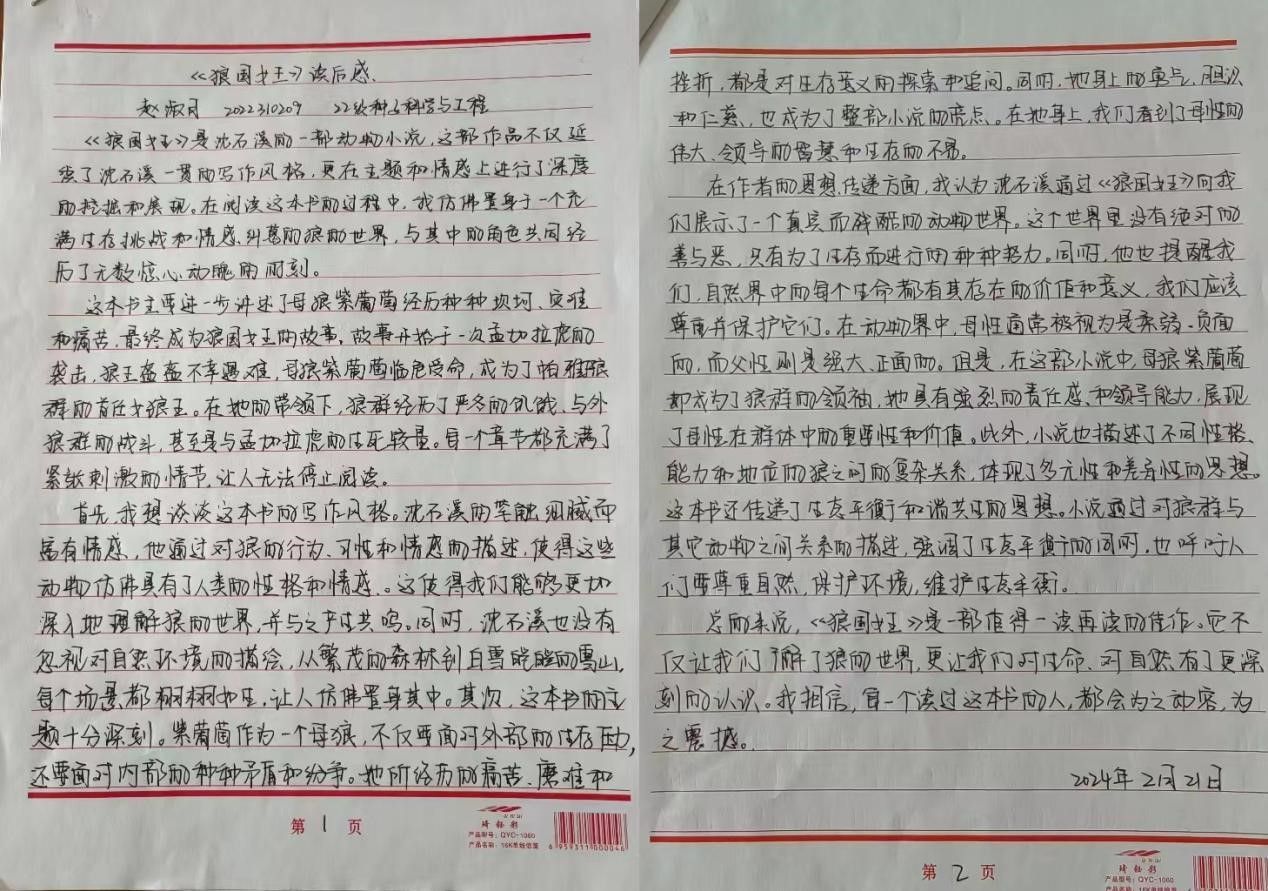 《狼国女王》读后感.
赵淑月 2022310209 22级种子科学与工程
《狼国女王》是沈石溪的一部动物小说,这部作品不仅延
续了沈石溪一贯的写作风格,更在主题和情感上进行了深度
的挖掘和展现。在阅读这本书的过程中,我仿佛置身于一个充
满生存挑战和情感纠葛的狼的世界,与其中的角色共同经
历了无数惊心动魄的时刻。
这本书主要进一步讲述了母狼紫葡萄经历种种坎坷、灾难
和痛苦,最终成为狼国女王的故事。故事开始于一次孟加拉虎的
袭击,狼王盔盔不幸遇难,母狼紫葡萄临危受命,成为了帕雅狼
群的首任女狼王。在她的带领下,狼群经历了严冬的饥饿、与外
狼群的战斗,甚至是与孟加拉虎的生死较量。每一个章节都充满了
紧张刺激的情节,让人无法停止阅读。
首先,我想谈谈这本书的写作风格。沈石溪的笔触细腻而
富有情感,他通过对狼的行为、习性和情感的描述,使得这些
动物仿佛具有了人类的性格和情感。这使得我们能够更加
深入地理解狼的世界,并与之产生共鸣。同时,沈石溪也没有
忽视对自然环境的描绘,从繁茂的森林到白雪皑皑的雪山,
每个场景都栩栩如生,让人仿佛置身其中。其次,这本书的主
题十分深刻。紫葡萄作为一个母狼,不仅要面对外部的生存压力,
还要面对内部的种种矛盾和纷争。她所经历的痛苦、磨难和
第 1 页
琦钰彩
产品型号:QYC-1060
产品名称:16K单线信笺
6 959311 000046
挫折,都是对生存意义的探索和追问。同时,她身上的勇气、胆识
和仁慈,也成为了整部小说的亮点。在她身上,我们看到了母性的
伟大、领导的智慧和生存的不易。
在作者的思想传递方面,我认为沈石溪通过《狼国女王》向我
们展示了一个真实而残酷的动物世界。这个世界里没有绝对的
善与恶,只有为了生存而进行的种种努力。同时,他也提醒我
们,自然界中的每个生命都有其存在的价值和意义,我们应该
尊重并保护它们。在动物界中,母性通常被视为是柔弱、负面
的,而父性则是强大、正面的。但是,在这部小说中,母狼紫葡萄
却成为了狼群的领袖,她具有强烈的责任感、和领导能力,展现
了母性在群体中的重要性和价值。此外,小说也描述了不同性格、
能力和地位的狼之间的复杂关系,体现了多元性和差异性的思想。
这本书还传递了生态平衡和谐共生的思想。小说通过对狼群与
其它动物之间关系的描述,强调了生态平衡的同时,也呼吁人
们要尊重自然,保护环境,维护生态平衡。
总的来说,《狼国女王》是一部值得一读再读的佳作。它不
仅让我们了解了狼的世界,更让我们对生命、对自然有了更深
刻的认识。我相信,每一个读过这本书的人,都会为之动容,为
之震撼。
2024年2月21日
第 2 页
琦钰彩
产品型号:QYC-1060
产品名称:16K单线信笺